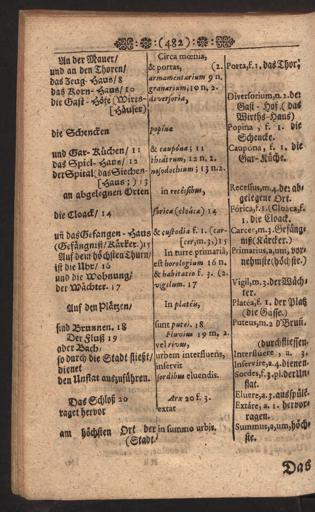 (482)
An der Mauer/
und an den Thoren/
das Zeug-Haus/ 8
das Korn-Haus/ 10
die Gast-Höfe (Wirts-
[Häuser)
die Schencken
und Gar-Küchen/ 11
das Spiel-Haus/ 12
der Spital (das Siechen-
[Haus;) 13
an abgelegnen Orten
die Cloack/ 14
uñ das Gefangen-Haus
(Gefängniß/ Kärker.) 15
Auf dem höchsten Thurn/
ist die Uhr/ 16
und die Wohnung/
der Wächter. 17
Auf den Plätzen/
sind Brunnen. 18
Der Fluß 19
oder Bach/
so durch die Stadt fließt/
dienet
den Unflat auszuführen.
Das Schloß 20
raget hervor
am höchsten Ort der
(Stadt.
Circa mœnia,
& portas, (2.
armamentarium 9 n.
granarium, 10 n. 2.
diversoria,
popinæ
& caupónæ; 11
theátrum, 12 n. 2
nosodochium; 13 n. 2.
in recéssibus,
fórica (cloáca) 14
& custodia f. 1. (car-
(cer, m. 3.) 15
In turre primariâ,
est horologium 16 n.
& habitatio f. 3. (2.
vigilum. 17
In platéis,
sunt putei. 18
Fluvius 19 m. 2.
vel rivus,
urbem interfluens,
inservit
sordibus eluendis.
Arx 20 f. 3.
extat
in summo urbis.
Porta, f. 1. das Thor;
Diversorium, n. 2. der
Gast-Hof (das
Wirths-Haus)
Popina, f. 1. die
Schencke.
Caupóna, f. 1. die
Gar-Küche.
Recessus, m. 4. der ab-
gelegene Ort.
Fórica, f. 1. (Cloáca, f.
1. die Cloack.
Carcer, m. 3. Gefäng-
niß (Kärcker.)
Primarius, a, um, vor-
nehmste (höchste.)
Vigil, m. 3. der Wäch-
ter.
Platéa, f. 1. der Platz
(die Gasse.)
Puteus, m. 2 d'Brun̄.
(durchfliessen.
Interfluere, a. 3.
Inservíre, a. 4. dienen.
Sordes, f. 3. pl. der Un-
flat.
Eluere, a. 3. ausspüle.
Extáre, a. 1. hervor-
ragen.
Summus, a, um, höch-
ste.
Das